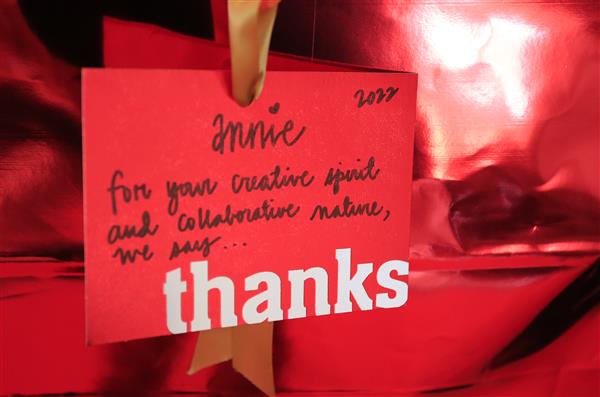 2022
Annie
for your creative spirit
and collaborative nature,
we say...
thanks